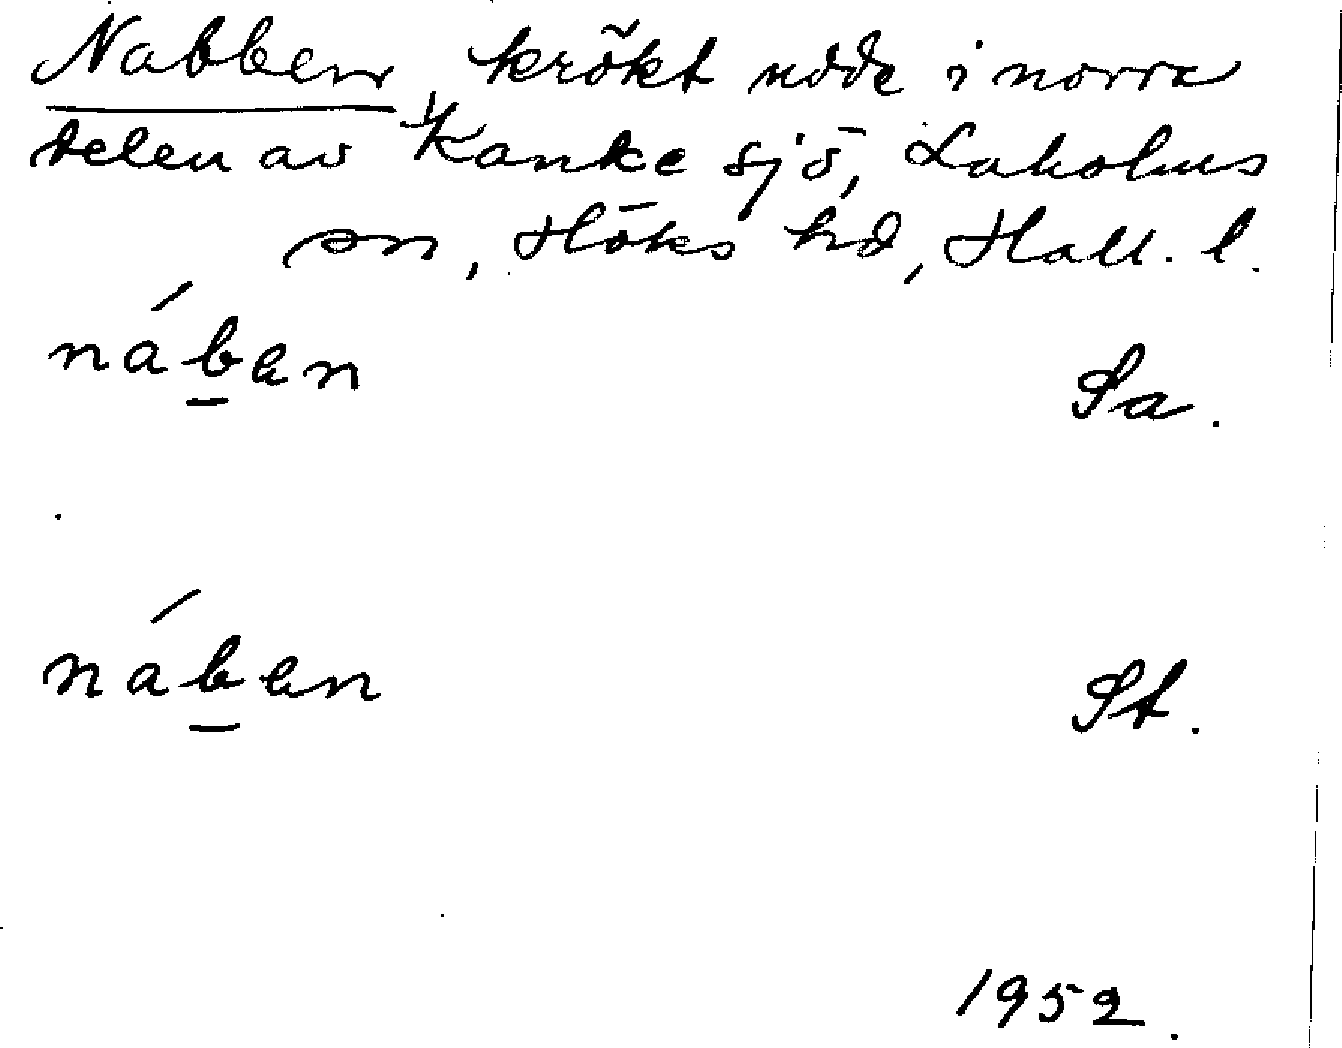 Nabben, krökt udde i norra
delen av Kanke sjö, Laholms
sn, Höks hd, Hall. l.
náben
Sa.
náben
St.
1952.